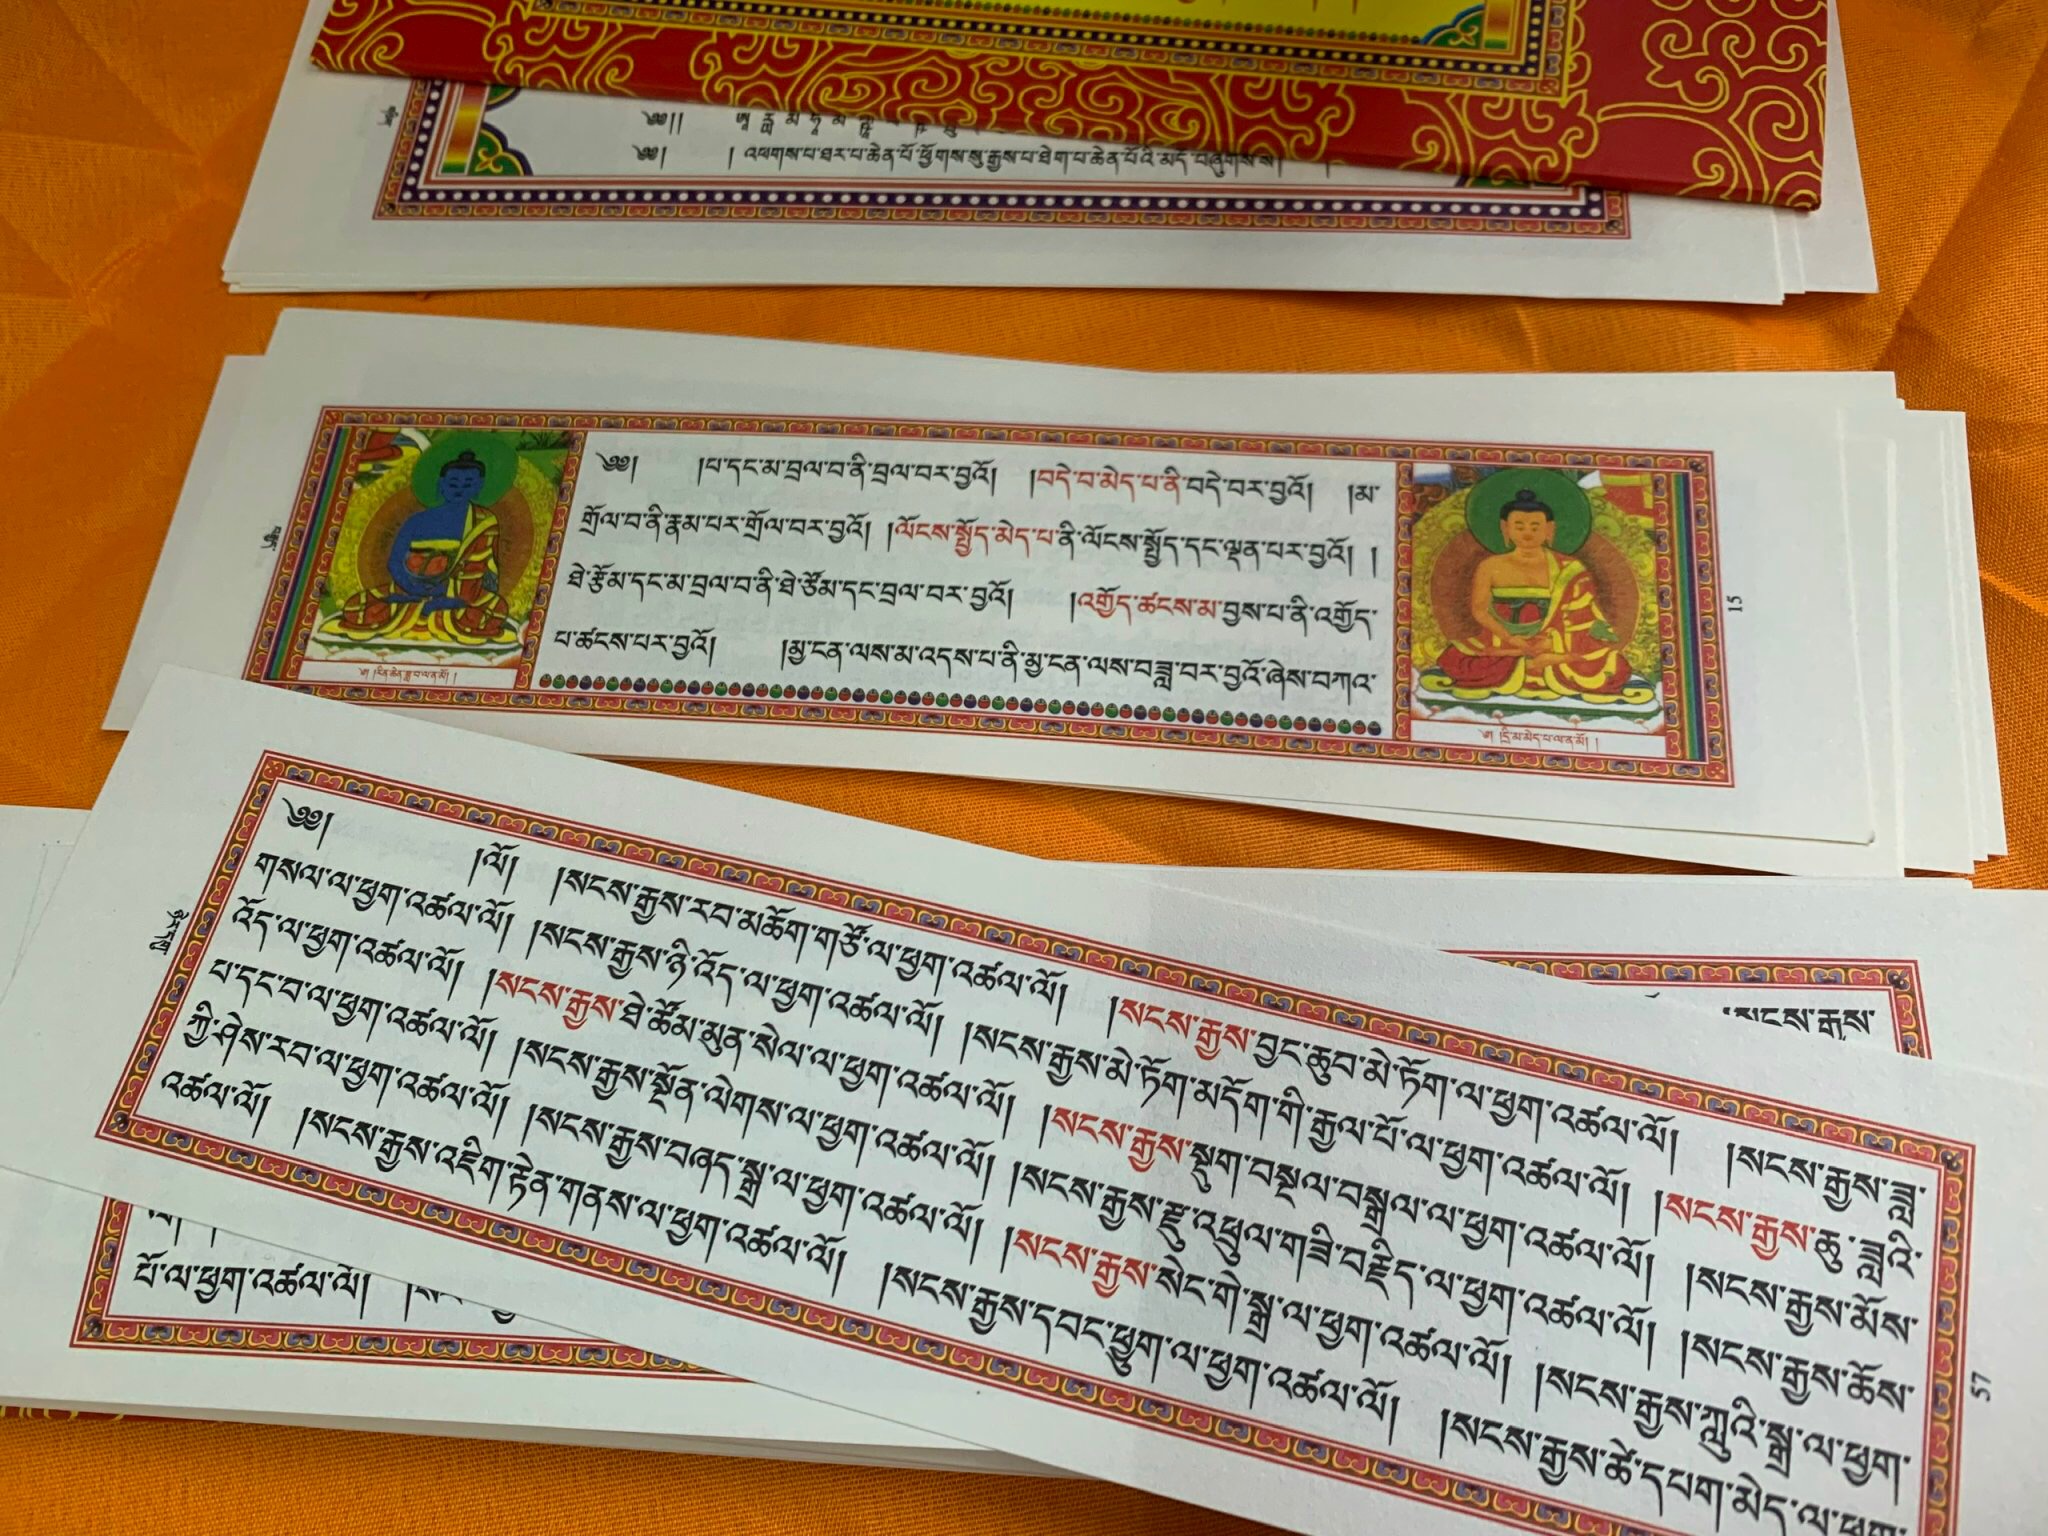 ༄༅།།
༄༅། །འཕགས་པ་ཐར་པ་ཆེན་པོ་ཕྱོགས་སུ་རྒྱས་པ་ཐེག་པ་ཆེན་པོའི་མདོ་བཞུགས་སོ།
༄༅། །པ་དང་མ་བྲལ་བ་ནི་བྲལ་བར་བྱའོ། །བདེ་བ་མེད་པ་ནི་བདེ་བར་བྱའོ། །མ་
གྲོལ་བ་ནི་རྣམ་པར་གྲོལ་བར་བྱའོ། །ལོངས་སྤྱོད་མེད་པ་ནི་ལོངས་སྤྱོད་དང་ལྡན་པར་བྱའོ། །
ཐེ་ཚོམ་དང་མ་བྲལ་བ་ནི་ཐེ་ཚོམ་དང་བྲལ་བར་བྱའོ། །འགྱོད་ཚངས་མ་བྱས་པ་ནི་འགྱོད་
པ་ཚངས་པར་བྱའོ། །མྱ་ངན་ལས་མ་འདས་པ་ནི་མྱ་ངན་ལས་བཟླ་བར་བྱའོ་ཞེས་བཀའ་
༄། །དྲི་མ་མེད་པ་ལ་ན་མོ། །
15
༄༅། །ལོ། །སངས་རྒྱས་རབ་མཆོག་གཙོ་ལ་ཕྱག་འཚལ་ལོ། །སངས་རྒྱས་བྱང་ཆུབ་མེ་ཏོག་ལ་ཕྱག་འཚལ་ལོ། །སངས་རྒྱས་ཟླ་
གསལ་ལ་ཕྱག་འཚལ་ལོ། །སངས་རྒྱས་ཉི་འོད་ལ་ཕྱག་འཚལ་ལོ། །སངས་རྒྱས་མེ་ཏོག་མདོག་གི་རྒྱལ་པོ་ལ་ཕྱག་འཚལ་ལོ། །སངས་རྒྱས་ཆུ་ཟླའི་
འོད་ལ་ཕྱག་འཚལ་ལོ། །སངས་རྒྱས་ཐེ་ཚོམ་མུན་སེལ་ལ་ཕྱག་འཚལ་ལོ། །སངས་རྒྱས་སྡུག་བསྔལ་བསྒྲལ་ལ་ཕྱག་འཚལ་ལོ། །སངས་རྒྱས་མོས་
པ་དང་བ་ལ་ཕྱག་འཚལ་ལོ། །སངས་རྒྱས་སྤྱོན་ལེགས་ལ་ཕྱག་འཚལ་ལོ། །སངས་རྒྱས་རྫུ་འཕྲུལ་གཟི་བརྗིད་ལ་ཕྱག་འཚལ་ལོ། །སངས་རྒྱས་ཆོས་
ཀྱི་ཤེས་རབ་ལ་ཕྱག་འཚལ་ལོ། །སངས་རྒྱས་བཞད་སྒྲ་ལ་ཕྱག་འཚལ་ལོ། །སངས་རྒྱས་སེང་གེ་སྒྲ་ལ་ཕྱག་འཚལ་ལོ། །སངས་རྒྱས་ཀླུའི་སྒྲ་ལ་ཕྱག་
འཚལ་ལོ། །སངས་རྒྱས་འཇིག་རྟེན་གནས་ལ་ཕྱག་འཚལ་ལོ། །སངས་རྒྱས་དབང་ཕྱུག་ལ་ཕྱག་འཚལ་ལོ། །སངས་རྒྱས་ཚེ་དཔག་མེད་ལ་ཕྱག་
57
།སངས་རྒྱས་
པོ་ལ་ཕྱག་འཚལ་ལོ།